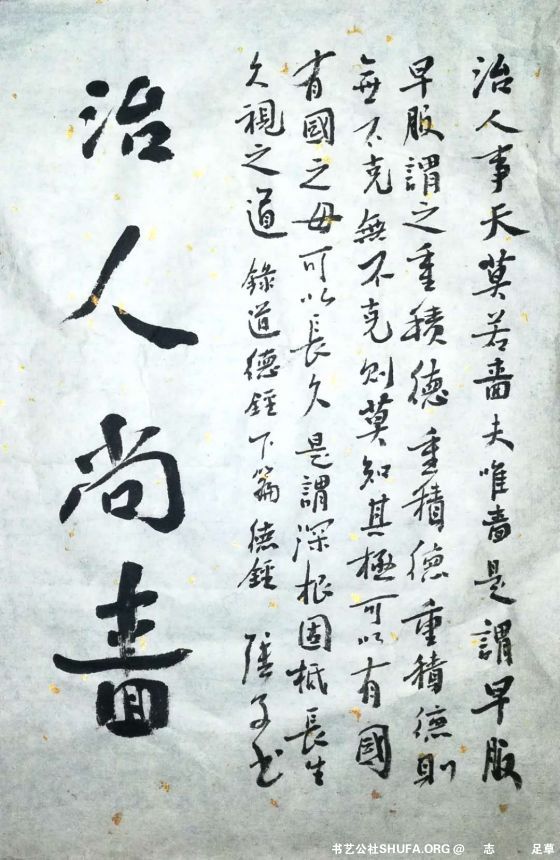 治人事天莫若嗇夫唯嗇是謂早服
早服謂之重積德重積德重積德則
無不克無不克則莫知其極可以有國
有國之母可以長久是謂深根固柢長生
久視之道 錄道德經下篇德經 书
治人尚嗇
书艺公社SHUFA.ORG @ 志 足草